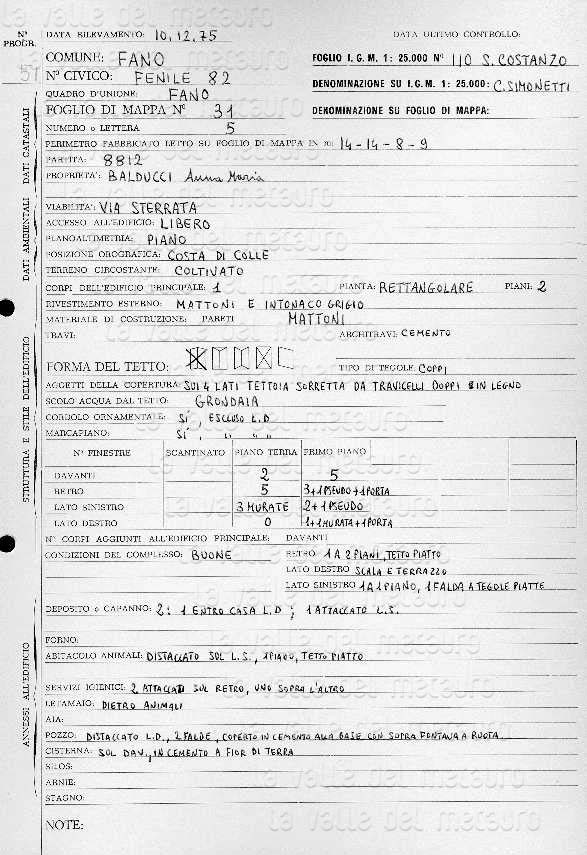 N° PROGR.
DATA RILEVAMENTO: 10.12.75 DATA ULTIMO CONTROLLO:
51
COMUNE: FANO FOGLIO I.G.M. 1: 25.000 N° 110 S. COSTANZO
N° CIVICO: FENILE 82 DENOMINAZIONE SU I.G.M. 1: 25.000: C. SIMONETTI
QUADRO D'UNIONE: FANO
FOGLIO DI MAPPA N° 31 DENOMINAZIONE SU FOGLIO DI MAPPA:
NUMERO o LETTERA 5
PERIMETRO FABBRICATO LETTO SU FOGLIO DI MAPPA IN m: 14-14-8-9
PARTITA: 8812
PROPRIETA': BALDUCCI Anna Maria
DATI CATASTALI
VIABILITA': VIA STERRATA
ACCESSO ALL'EDIFICIO: LIBERO
PLANOALTIMETRIA: PIANO
POSIZIONE OROGRAFICA: COSTA DI COLLE
TERRENO CIRCOSTANTE: COLTIVATO
DATI AMBIENTALI
CORPI DELL'EDIFICIO PRINCIPALE: 1 PIANTA: RETTANGOLARE PIANI: 2
RIVESTIMENTO ESTERNO: MATTONI E INTONACO GRIGIO
MATERIALE DI COSTRUZIONE: PARETI MATTONI
TRAVI: ARCHITRAVI: CEMENTO
FORMA DEL TETTO: TIPO DI TEGOLE: COPPI
AGGETTI DELLA COPERTURA: SUI 4 LATI TETTOIA SORRETTA DA TRAVICELLI DOPPI IN LEGNO
SCOLO ACQUA DAL TETTO: GRONDAIA
CORDOLO ORNAMENTALE: SÍ, ESCLUSO L.D
MARCAPIANO: SÍ, " " "
STRUTTURA E STILE DELL'EDIFICIO
N° FINESTRE SCANTINATO PIANO TERRA PRIMO PIANO
DAVANTI 2 5
RETRO 5 3+1PSEUDO+1PORTA
LATO SINISTRO 3 MURATE 2+1PSEUDO
LATO DESTRO 0 1+1MURATA+1PORTA
N° CORPI AGGIUNTI ALL'EDIFICIO PRINCIPALE: DAVANTI
CONDIZIONI DEL COMPLESSO: BUONE RETRO 1 A 2 PIANI, TETTO PIATTO
LATO DESTRO SCALA E TERRAZZO
LATO SINISTRO 1 A 1 PIANO, 1 FALDA A TEGOLE PIATTE
DEPOSITO o CAPANNO: 2: 1 ENTRO CASA L.D; 1 ATTACCATO L.S.
FORNO:
ABITACOLO ANIMALI: DISTACCATO SUL L.S., 1 PIANO, TETTO PIATTO
SERVIZI IGIENICI: 2 ATTACCATI SUL RETRO, UNO SOPRA L'ALTRO
LETAMAIO: DIETRO ANIMALI
AIA:
POZZO: DISTACCATO L.D., 2 FALDE, COPERTO IN CEMENTO ALLA BASE CON SOPRA FONTANA A RUOTA
CISTERNA: SUL DAV., IN CEMENTO A FIOR DI TERRA
SILOS:
ARNIE:
STAGNO:
ANNESSI ALL'EDIFICIO
NOTE:
la valle del metauro